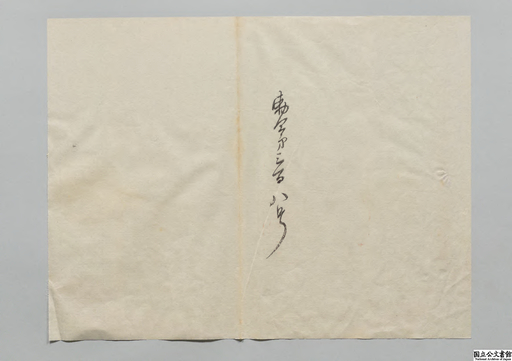 勅令第三百八号
国立公文書館
National Archives of Japan